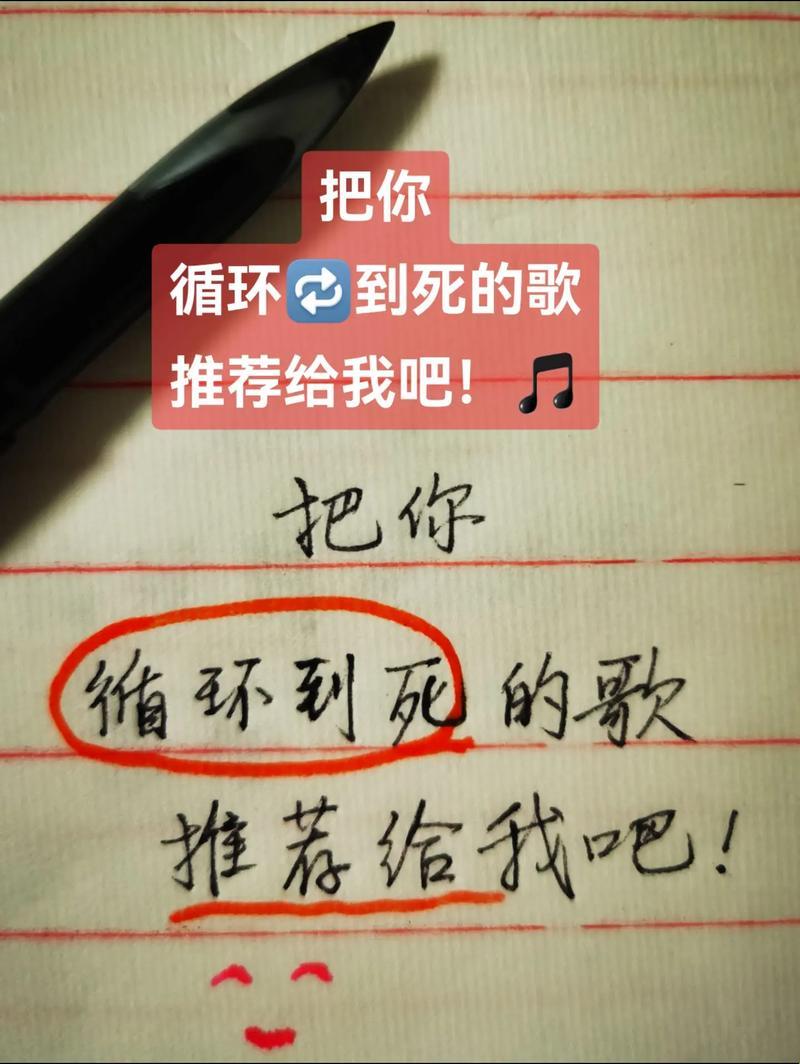 把你
循环🔁到死的歌
推荐给我吧！🎵
把你
循环到死的歌
推荐给我吧！